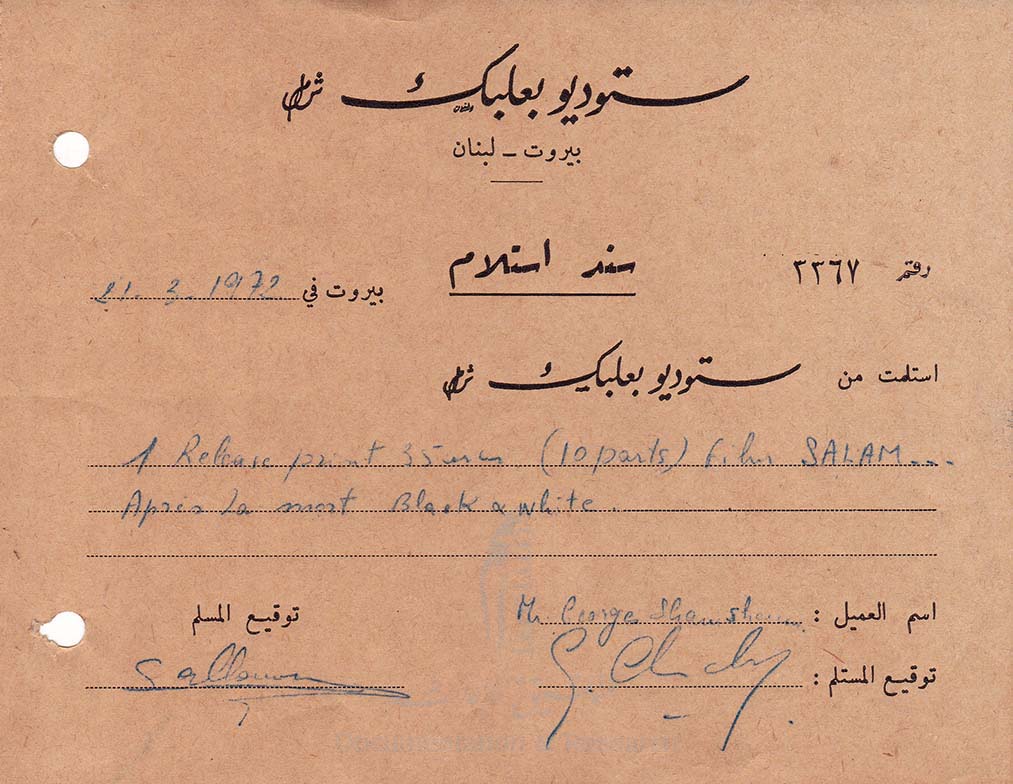 ستوديو بعلبك ش.م.ل
بيروت - لبنان
رقم ٣٣٦٧
سند استلام
بيروت في 21.3.1972
استلمت من ستوديو بعلبك ش.م.ل
1 Release print 35mm (10 parts) film SALAM...
Après la mort Black & white.
اسم العميل : Mr George Shamshoum
توقيع المسلم
توقيع المستلم :
Documentation & Research